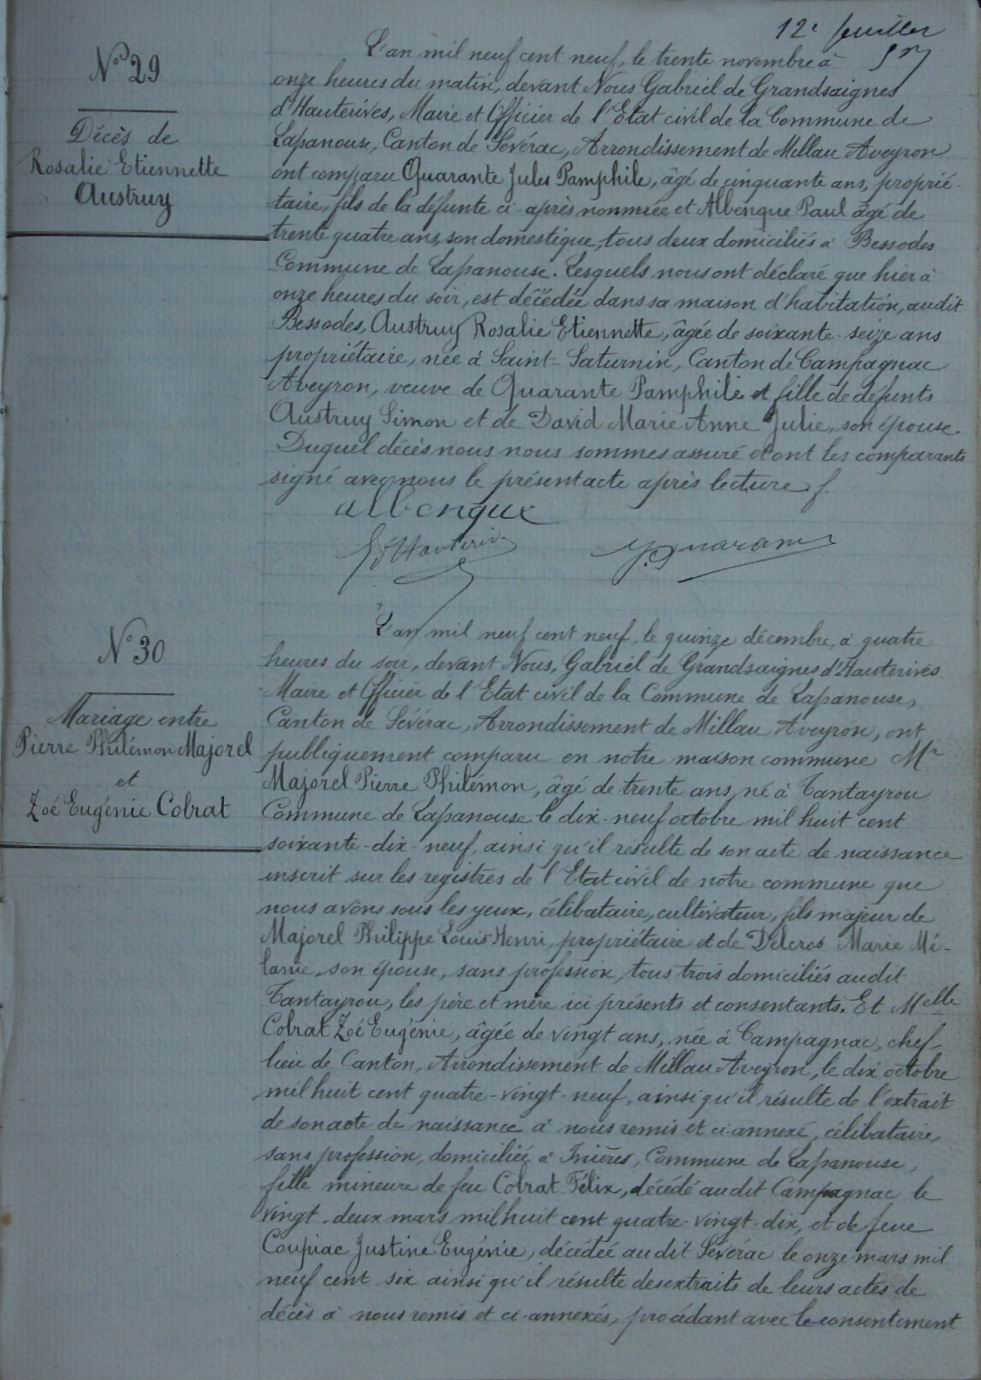 12e feuillet
N° 29
Décès de
Rosalie Etiennette
Austruy
L'an mil neuf cent neuf, le trente novembre à
onze heures du matin, devant Nous Gabriel de Grandsaignes
d'Hauterives, Maire et Officier de l'Etat civil de la Commune de
Lapanouse, Canton de Sévérac, Arrondissement de Millau Aveyron
ont comparu Quarante Jules Pamphile, âgé de cinquante ans, proprié-
taire, fils de la défunte ci-après nommée et Albenque Paul âgé de
trente quatre ans, son domestique, tous deux domiciliés à Bessodes
Commune de Lapanouse. Lesquels nous ont déclaré que hier à
onze heures du soir, est décédée dans sa maison d'habitation, audit
Bessodes, Austruy Rosalie Etiennette, âgée de soixante-seize ans
propriétaire, née à Saint-Saturnin, Canton de Campagnac
Aveyron, veuve de Quarante Pamphile et fille de défunts
Austruy Simon et de David Marie Anne Julie, son épouse.
Duquel décès nous nous sommes assuré et ont les comparants
signé avec nous le présent acte après lecture
albenque
G d'Hauterives
J. Quarante
N° 30
Mariage entre
Pierre Philémon Majorel
et
Zoé Eugénie Cobrat
L'an mil neuf cent neuf, le quinze décembre, à quatre
heures du soir, devant Nous, Gabriel de Grandsaignes d'Hauterives
Maire et Officier de l'Etat civil de la Commune de Lapanouse,
Canton de Sévérac, Arrondissement de Millau Aveyron, ont
publiquement comparu en notre maison commune Mr
Majorel Pierre Philémon, âgé de trente ans, né à Tantayrou
Commune de Lapanouse le dix-neuf octobre mil huit cent
soixante-dix-neuf, ainsi qu'il résulte de son acte de naissance
inscrit sur les registres de l'Etat civil de notre commune que
nous avons sous les yeux, célibataire, cultivateur, fils majeur de
Majorel Philippe Louis Henri, propriétaire et de Delcros Marie Mé-
lanie, son épouse, sans profession, tous trois domiciliés audit
Tantayrou, les père et mère ici présents et consentants. Et Melle
Cobrat Zoé Eugénie, âgée de vingt ans, née à Campagnac, chef-
lieu de Canton, Arrondissement de Millau Aveyron, le dix octobre
mil huit cent quatre-vingt-neuf, ainsi qu'il résulte de l'extrait
de son acte de naissance à nous remis et ci-annexé, célibataire,
sans profession, domiciliée à Inières, Commune de Lapanouse,
fille mineure de feu Cobrat Félix, décédé audit Campagnac le
vingt-deux mars mil huit cent quatre-vingt-dix, et de feue
Coupiac Justine Eugénie, décédée audit Sévérac le onze mars mil
neuf cent six ainsi qu'il résulte des extraits de leurs actes de
décès à nous remis et ci-annexés, procédant avec le consentement